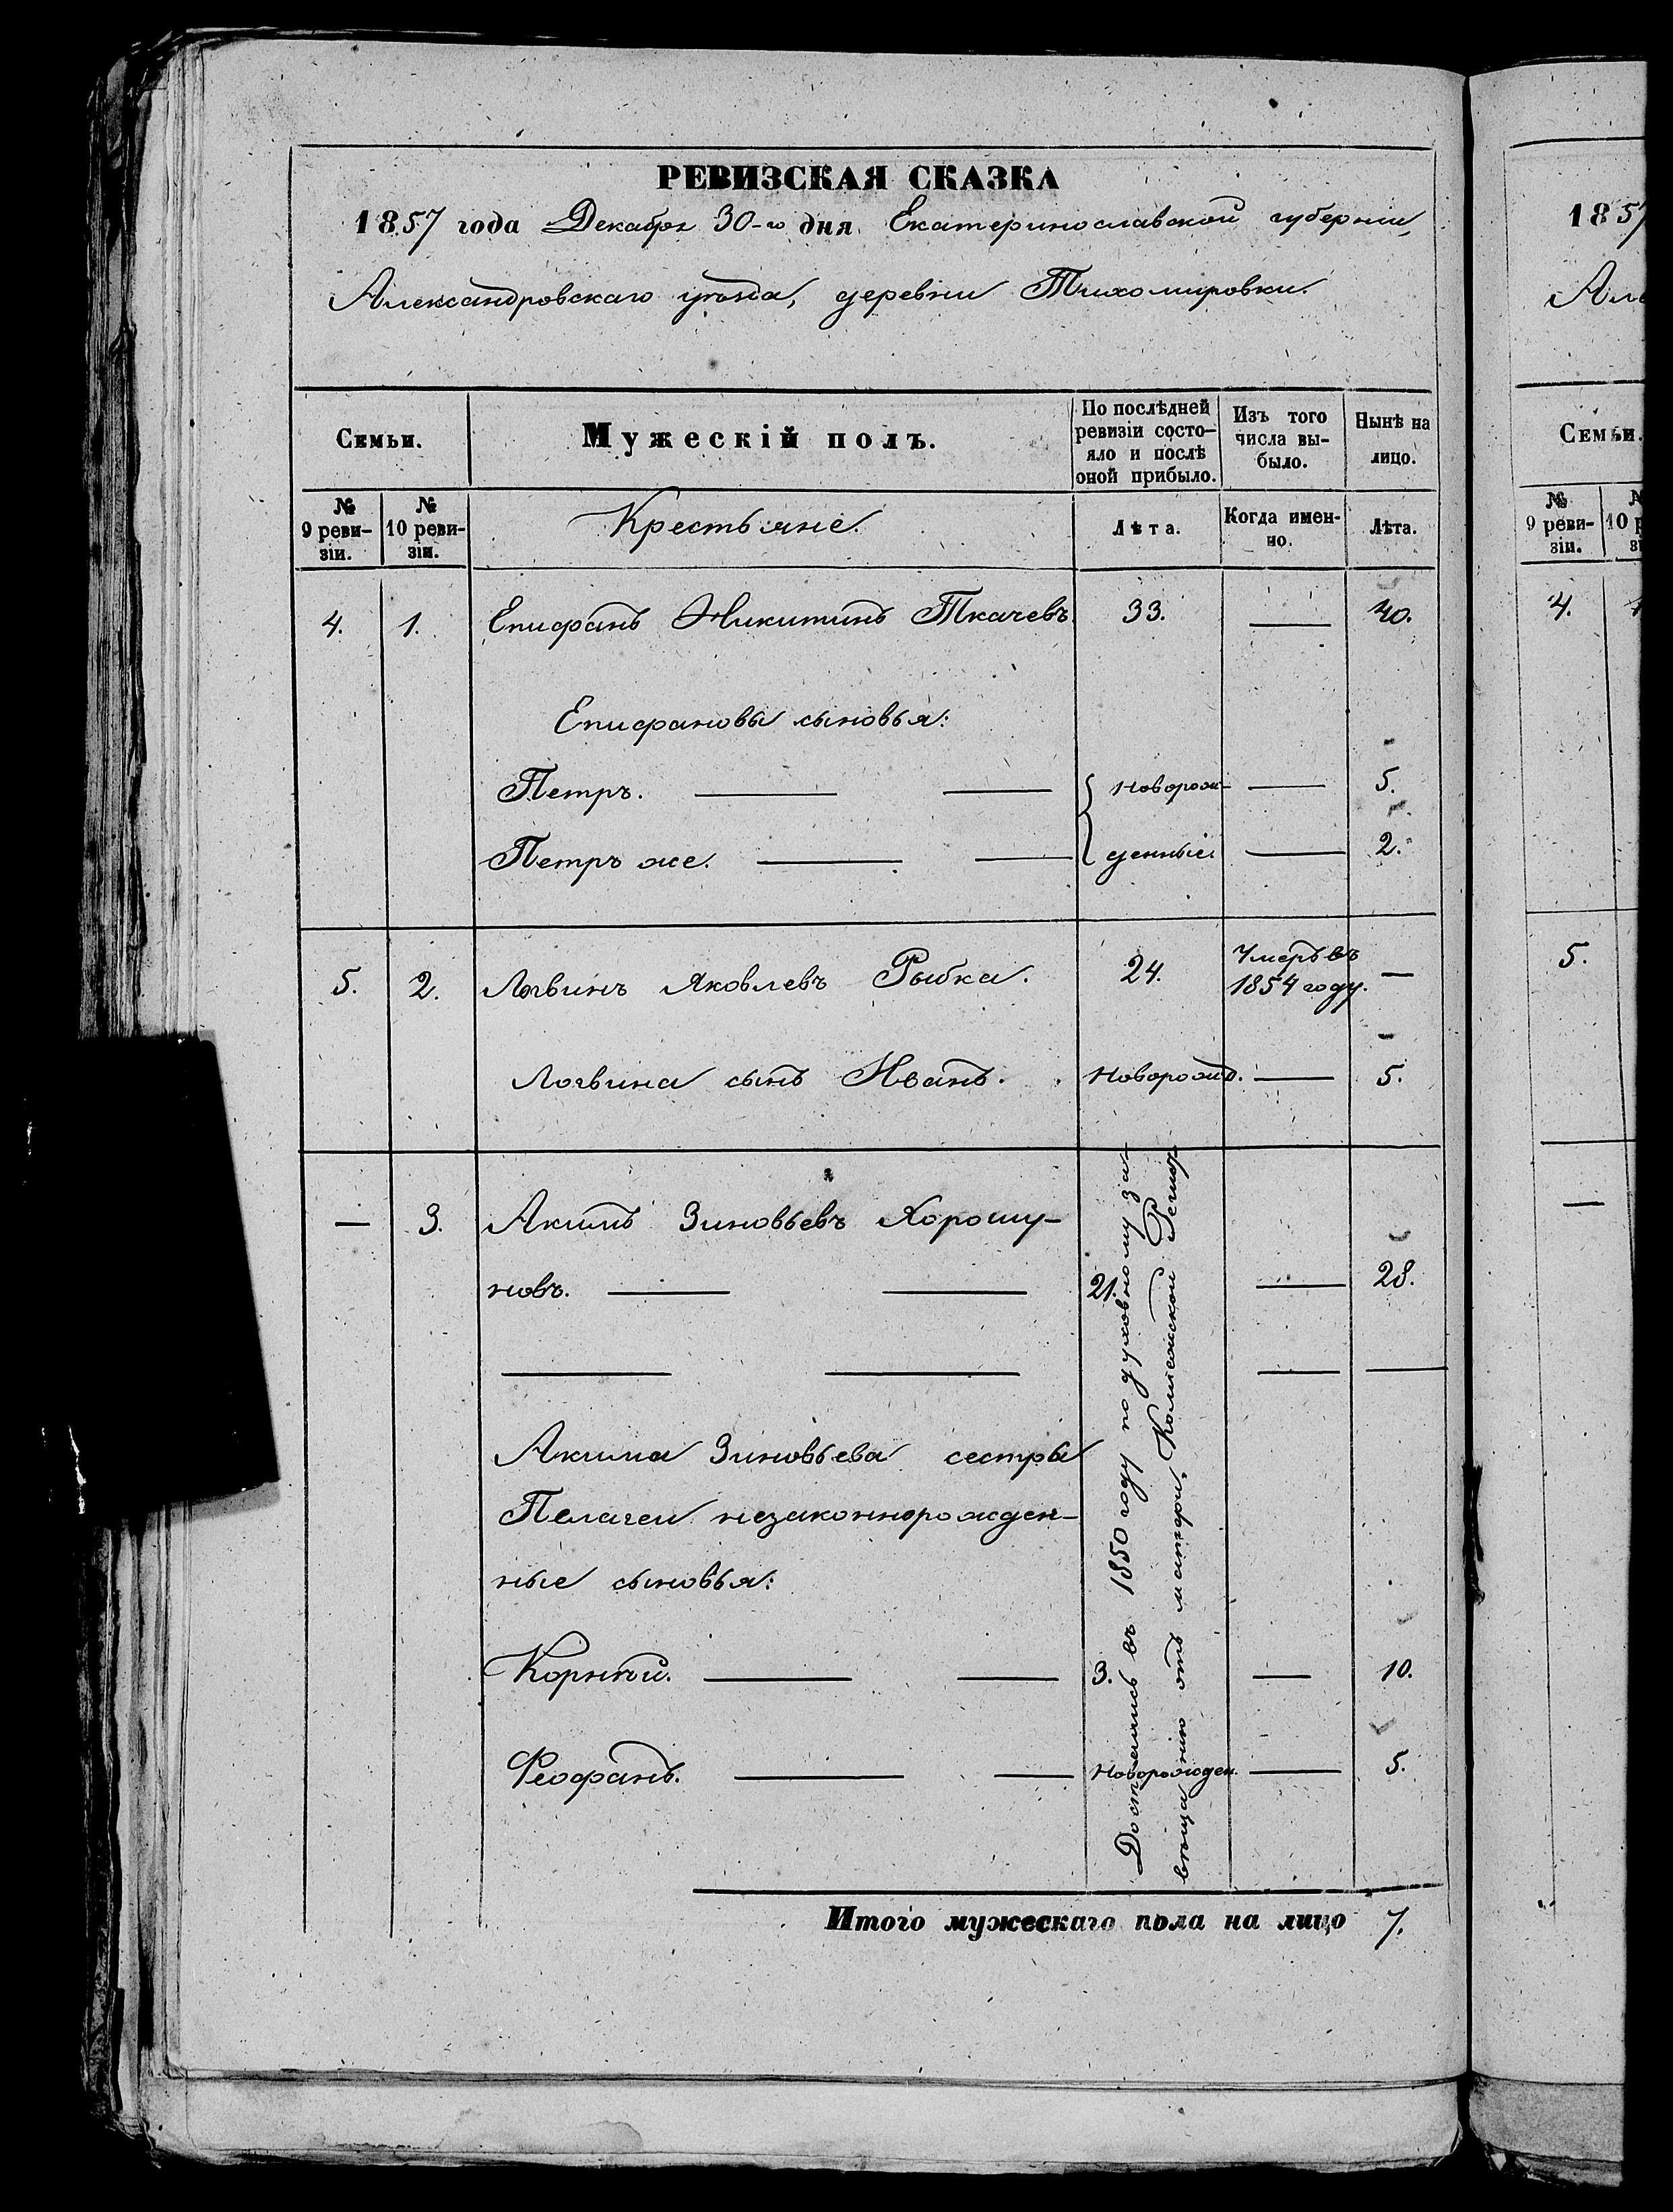 РЕВИЗСКАЯ СКАЗКА
1857 года Декабря 30-го дня Екатеринославской губернии,
Александровскаго уѣзда, деревни Тихомировки.
Семьи.
Мужескій полъ.
По послѣдней
ревизіи состо-
яло и послѣ
оной прибыло.
Изъ того
числа вы-
было.
Нынѣ на
лицо.
№
9 реви-
зіи.
№
10 реви-
зіи.
Крестьяне.
Лѣта.
Когда имен-
но.
Лѣта.
4. 1. Епифанъ Никитинъ Ткачевъ. 33. — 40.
Епифановы сыновья:
Петръ. — — новорож- — 5.
Петръ же. — — денные — 2.
5. 2. Логвинъ Яковлевъ Рыбка. 24. Умеръ въ
1854 году. —
Логвина сынъ Иванъ. Новорожд. — 5.
— 3. Акимъ Зиновьевъ Хорошу-
новъ. — — 21. — 28.
— — — —
Акима Зиновьева сестры
Пелагеи незаконнорожден-
ные сыновья:
Корнѣй. — — 3. — 10.
Феофанъ. — — Новорожден. — 5.
Достались въ 1850 году по духовному за-
вѣщанію отъ матери, Регистр
Итого мужескаго пола на лицо 7.
1857
Але
Семьи.
№
9 реви-
зіи.
10 р
4.
5.
—